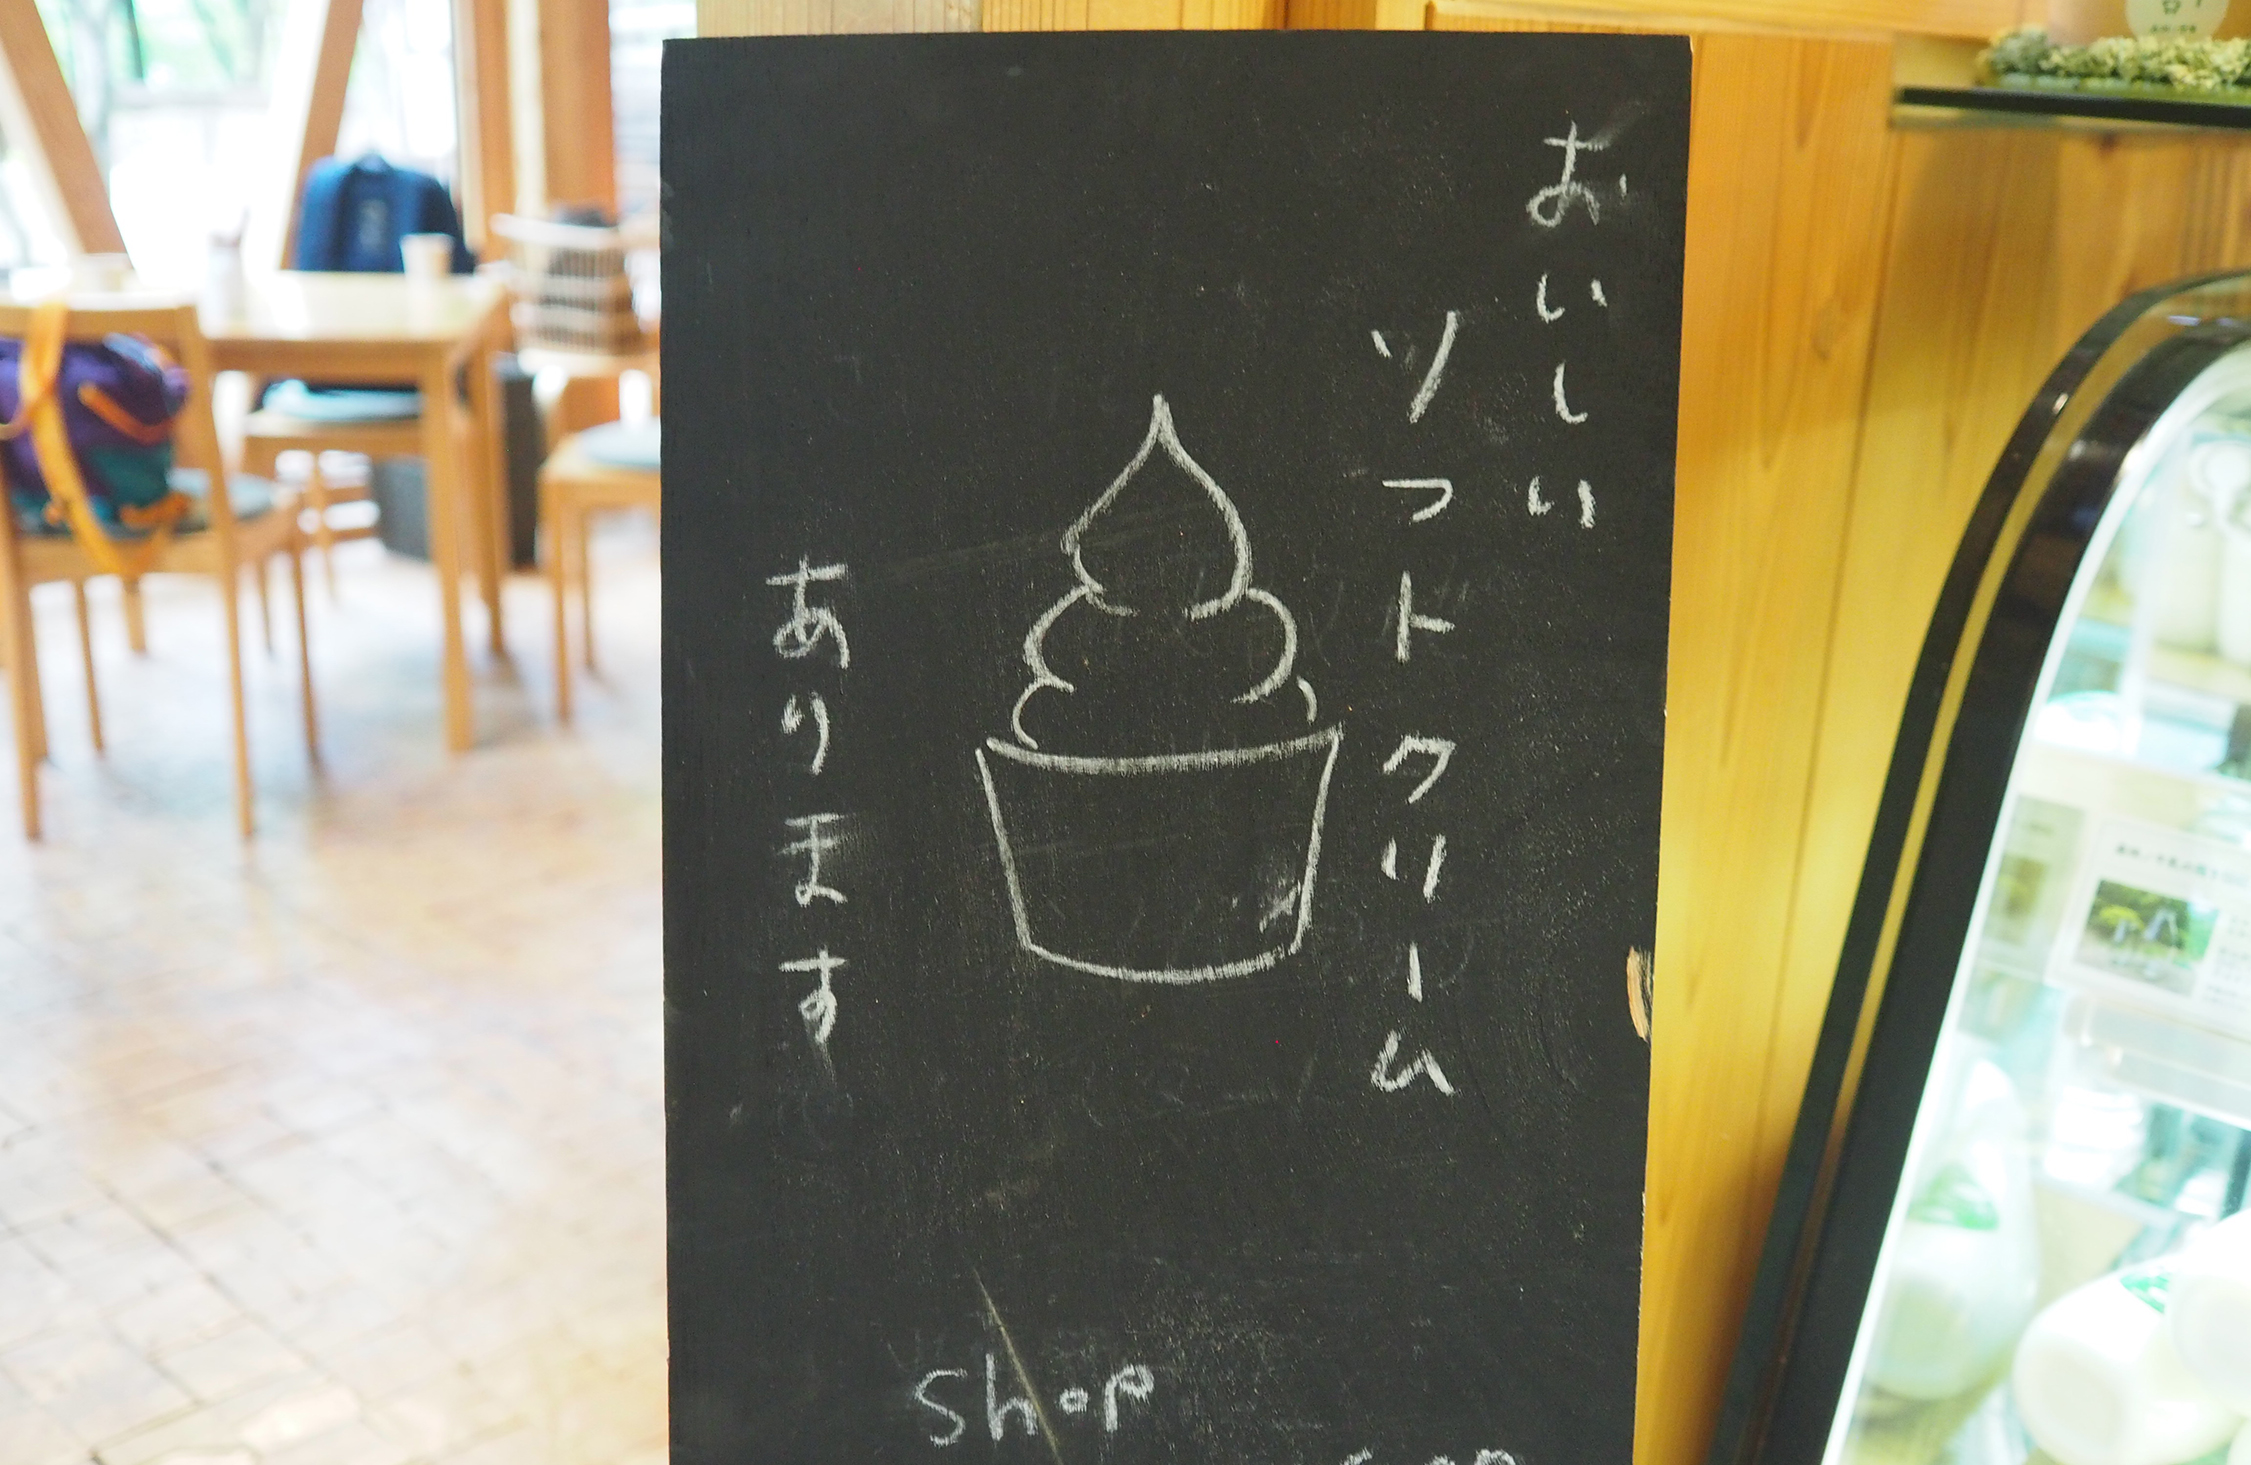 おいしい
ソフトクリーム
あります
Shop